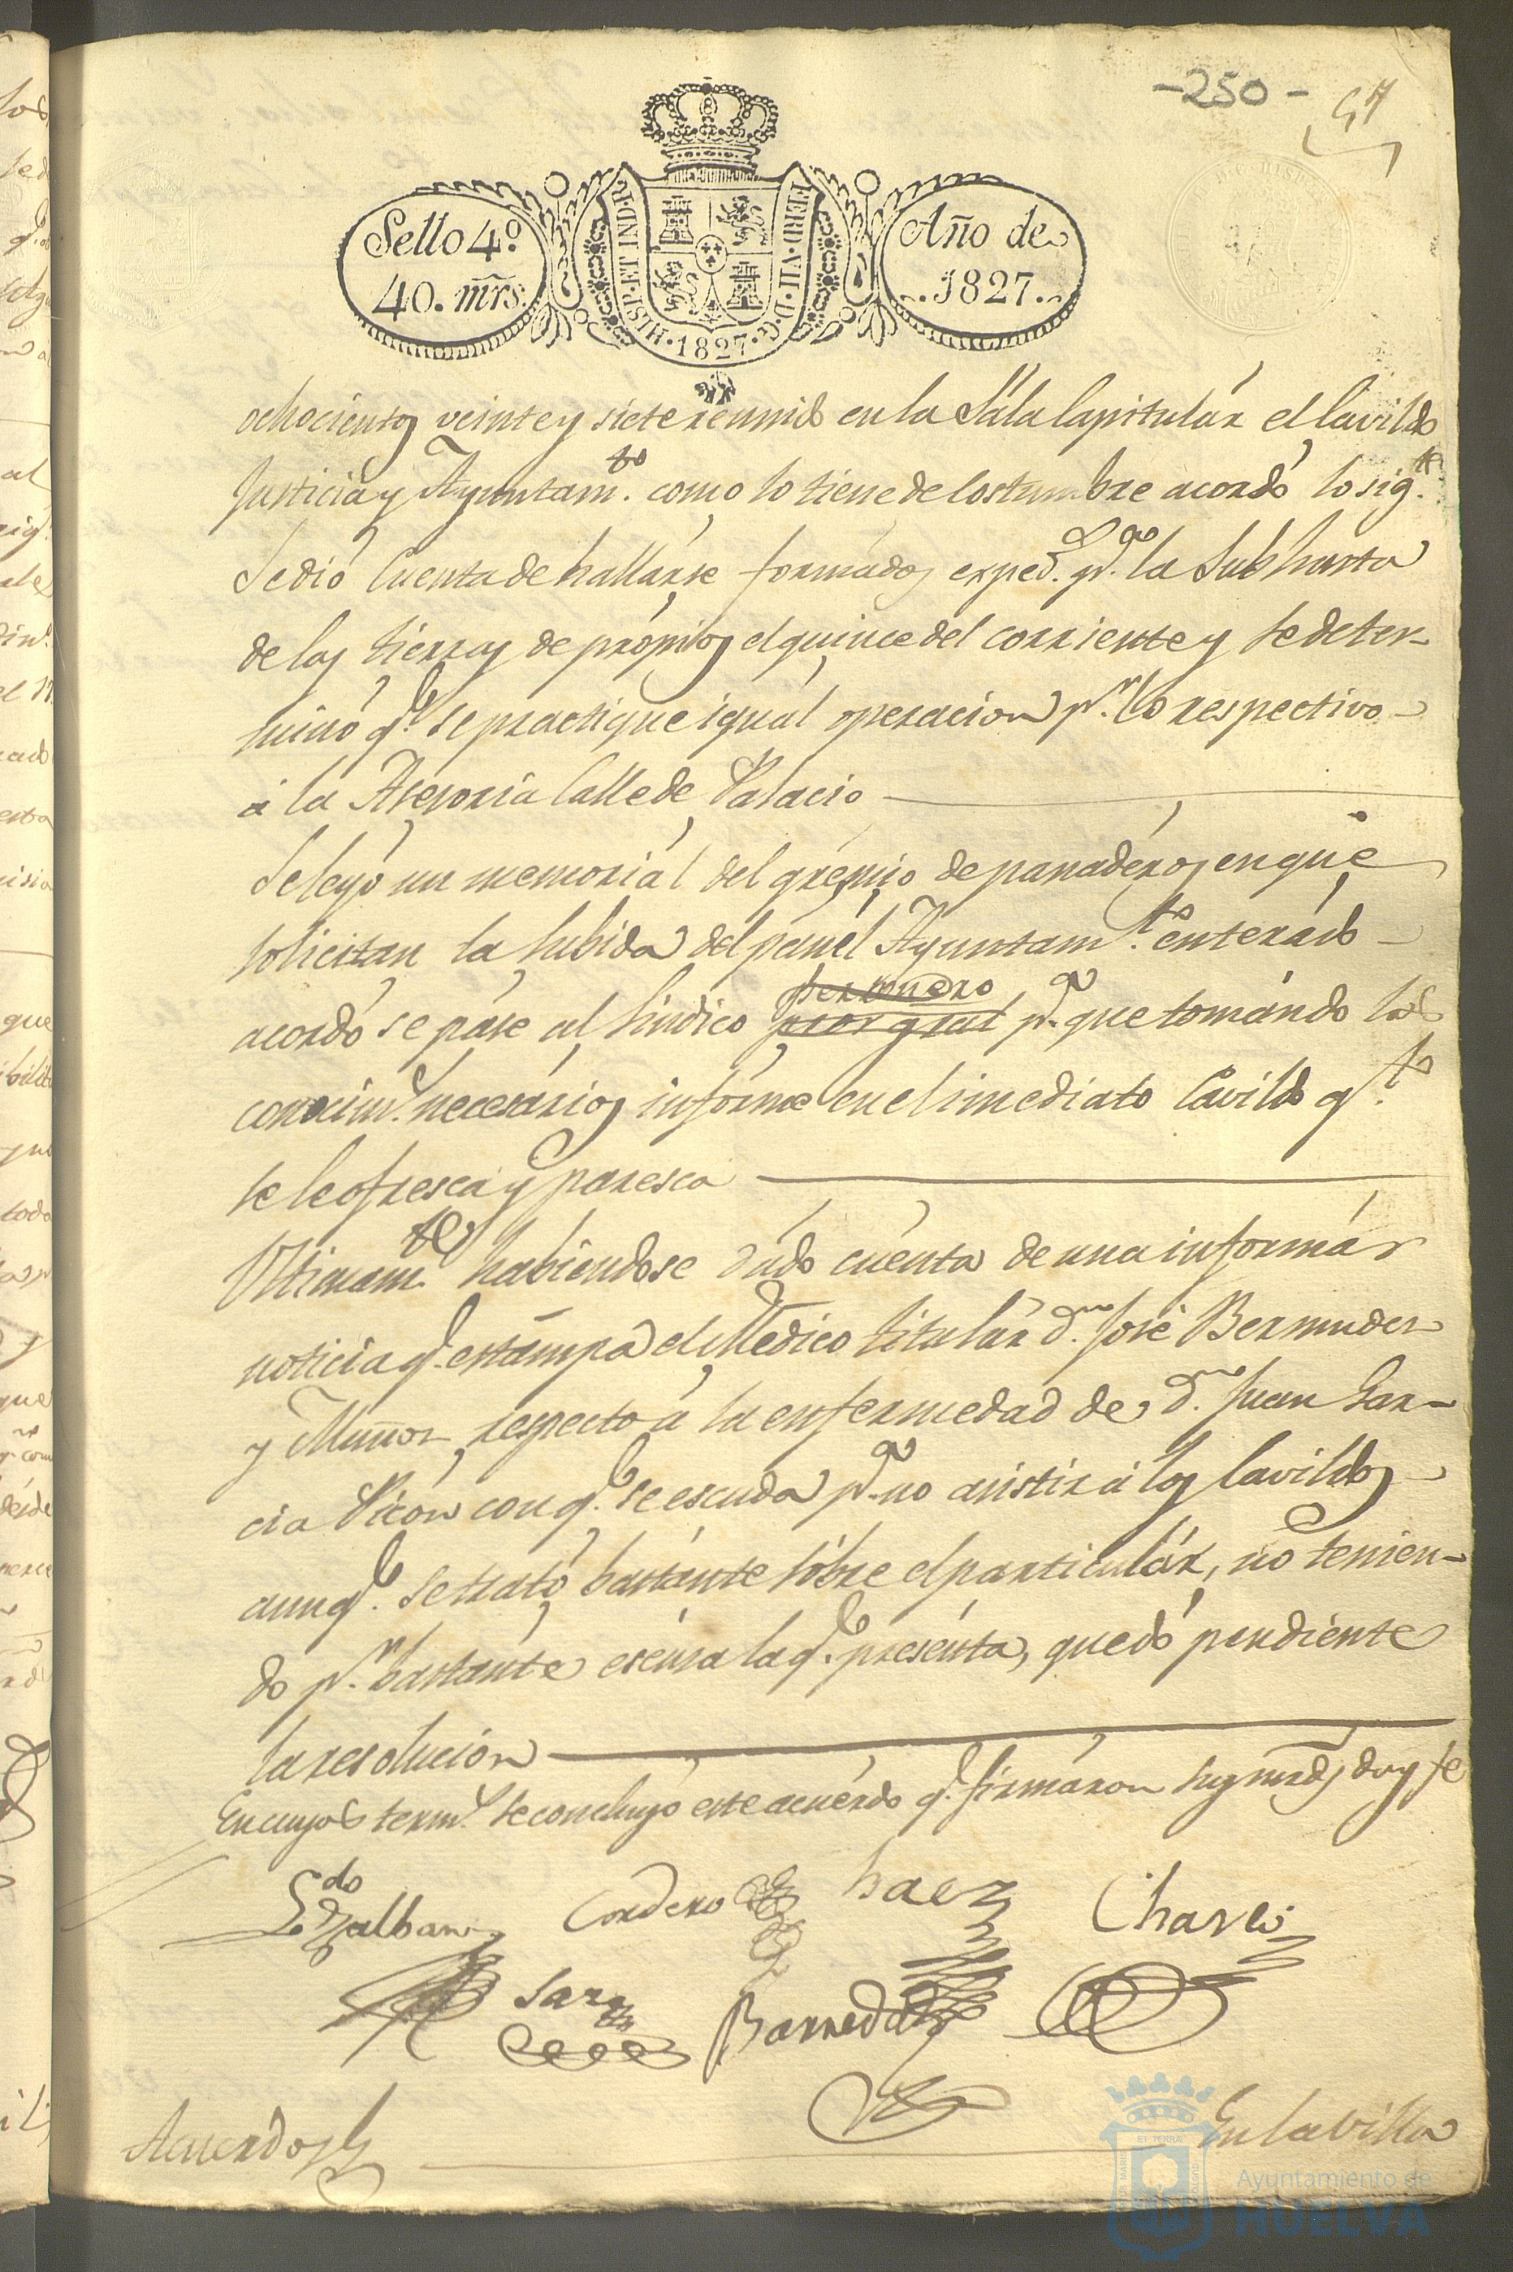 -250-
57
Sello 4.º
40. mrs.
HISP. ET IND. R.
FERD. VII. D. G.
·1827·
Año de
1827.
ochocientos veinte y siete reunido en la Sala Capitular el Cavildo
Justicia y Ayuntam.to como lo tiene de Costumbre acordó lo sig.te
Se dió Cuenta de hallarse formados exped.s p.a la Subhasta
de las tierras de propios el quince del corriente y se deter-
minó q.e se practique igual operacion p.r lo respectivo
á la Asesoria Calle de Palacio
Se leyó un memorial del gremio de panaderos en que
solicitan la subida del pan el Ayuntam.to enterado
acordó se pase al Sindico personero
pror gral p.a que tomando los
conocim.s necesarios informe en el imediato Cavildo q.to
se le ofresca y paresca
Ultimam.te habiendose dado cuenta de una informár
noticia q.e estampa el Medico titulár d.n José Bermudez
y Muñoz respecto á la enfermedad de D.n Juan Gar-
cia Picon con q.e se escuda p.a no asistir á los Cavildos
aunq.e se trató bastante sobre el particulár, no tenien-
do p.r bastante escusa la q.e presenta, quedó pendiente
la resolucion
En cuyos term.s se concluyó este acuerdo q.e firmáron sus mrds doy fe
Ldo Zalban
Cordero
Saez
Chaves
Garz
Barreda
Acuerdo
En la villa
Ayuntamiento de
HUELVA